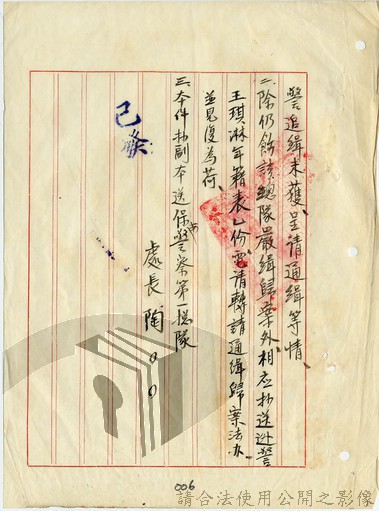 警追緝未獲、呈請通緝等情、
二、除仍飭該總隊嚴緝歸案外、相應抄送逃警
王琪淋年籍表乙份電請轉請通緝歸案法办、
並見復為荷、
三、本件抄副本送保警察第總隊
處長陶○○
已發
006
請合法使用公開之影像